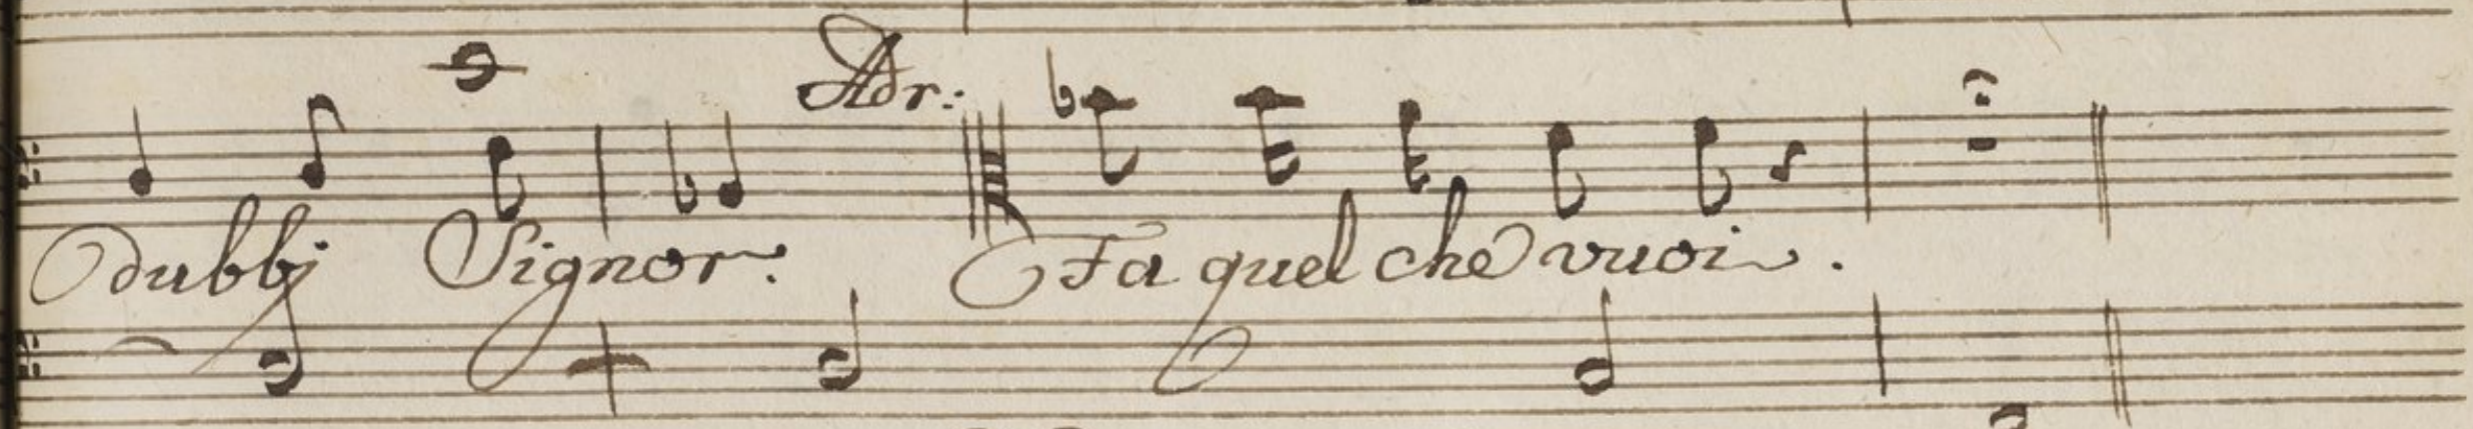 Adr:
dubbj Signor. Fa quel che vuoi.